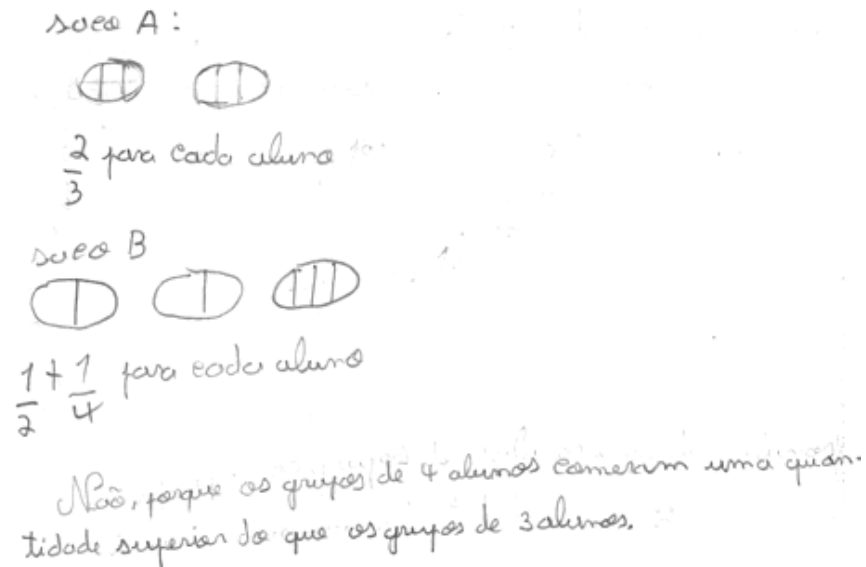 saco A:
2/3 para cada aluno
saco B
1/2 + 1/4 para cada aluno
Não, porque os grupos de 4 alunos comeram uma quan-
tidade superior do que os grupos de 3 alunos.